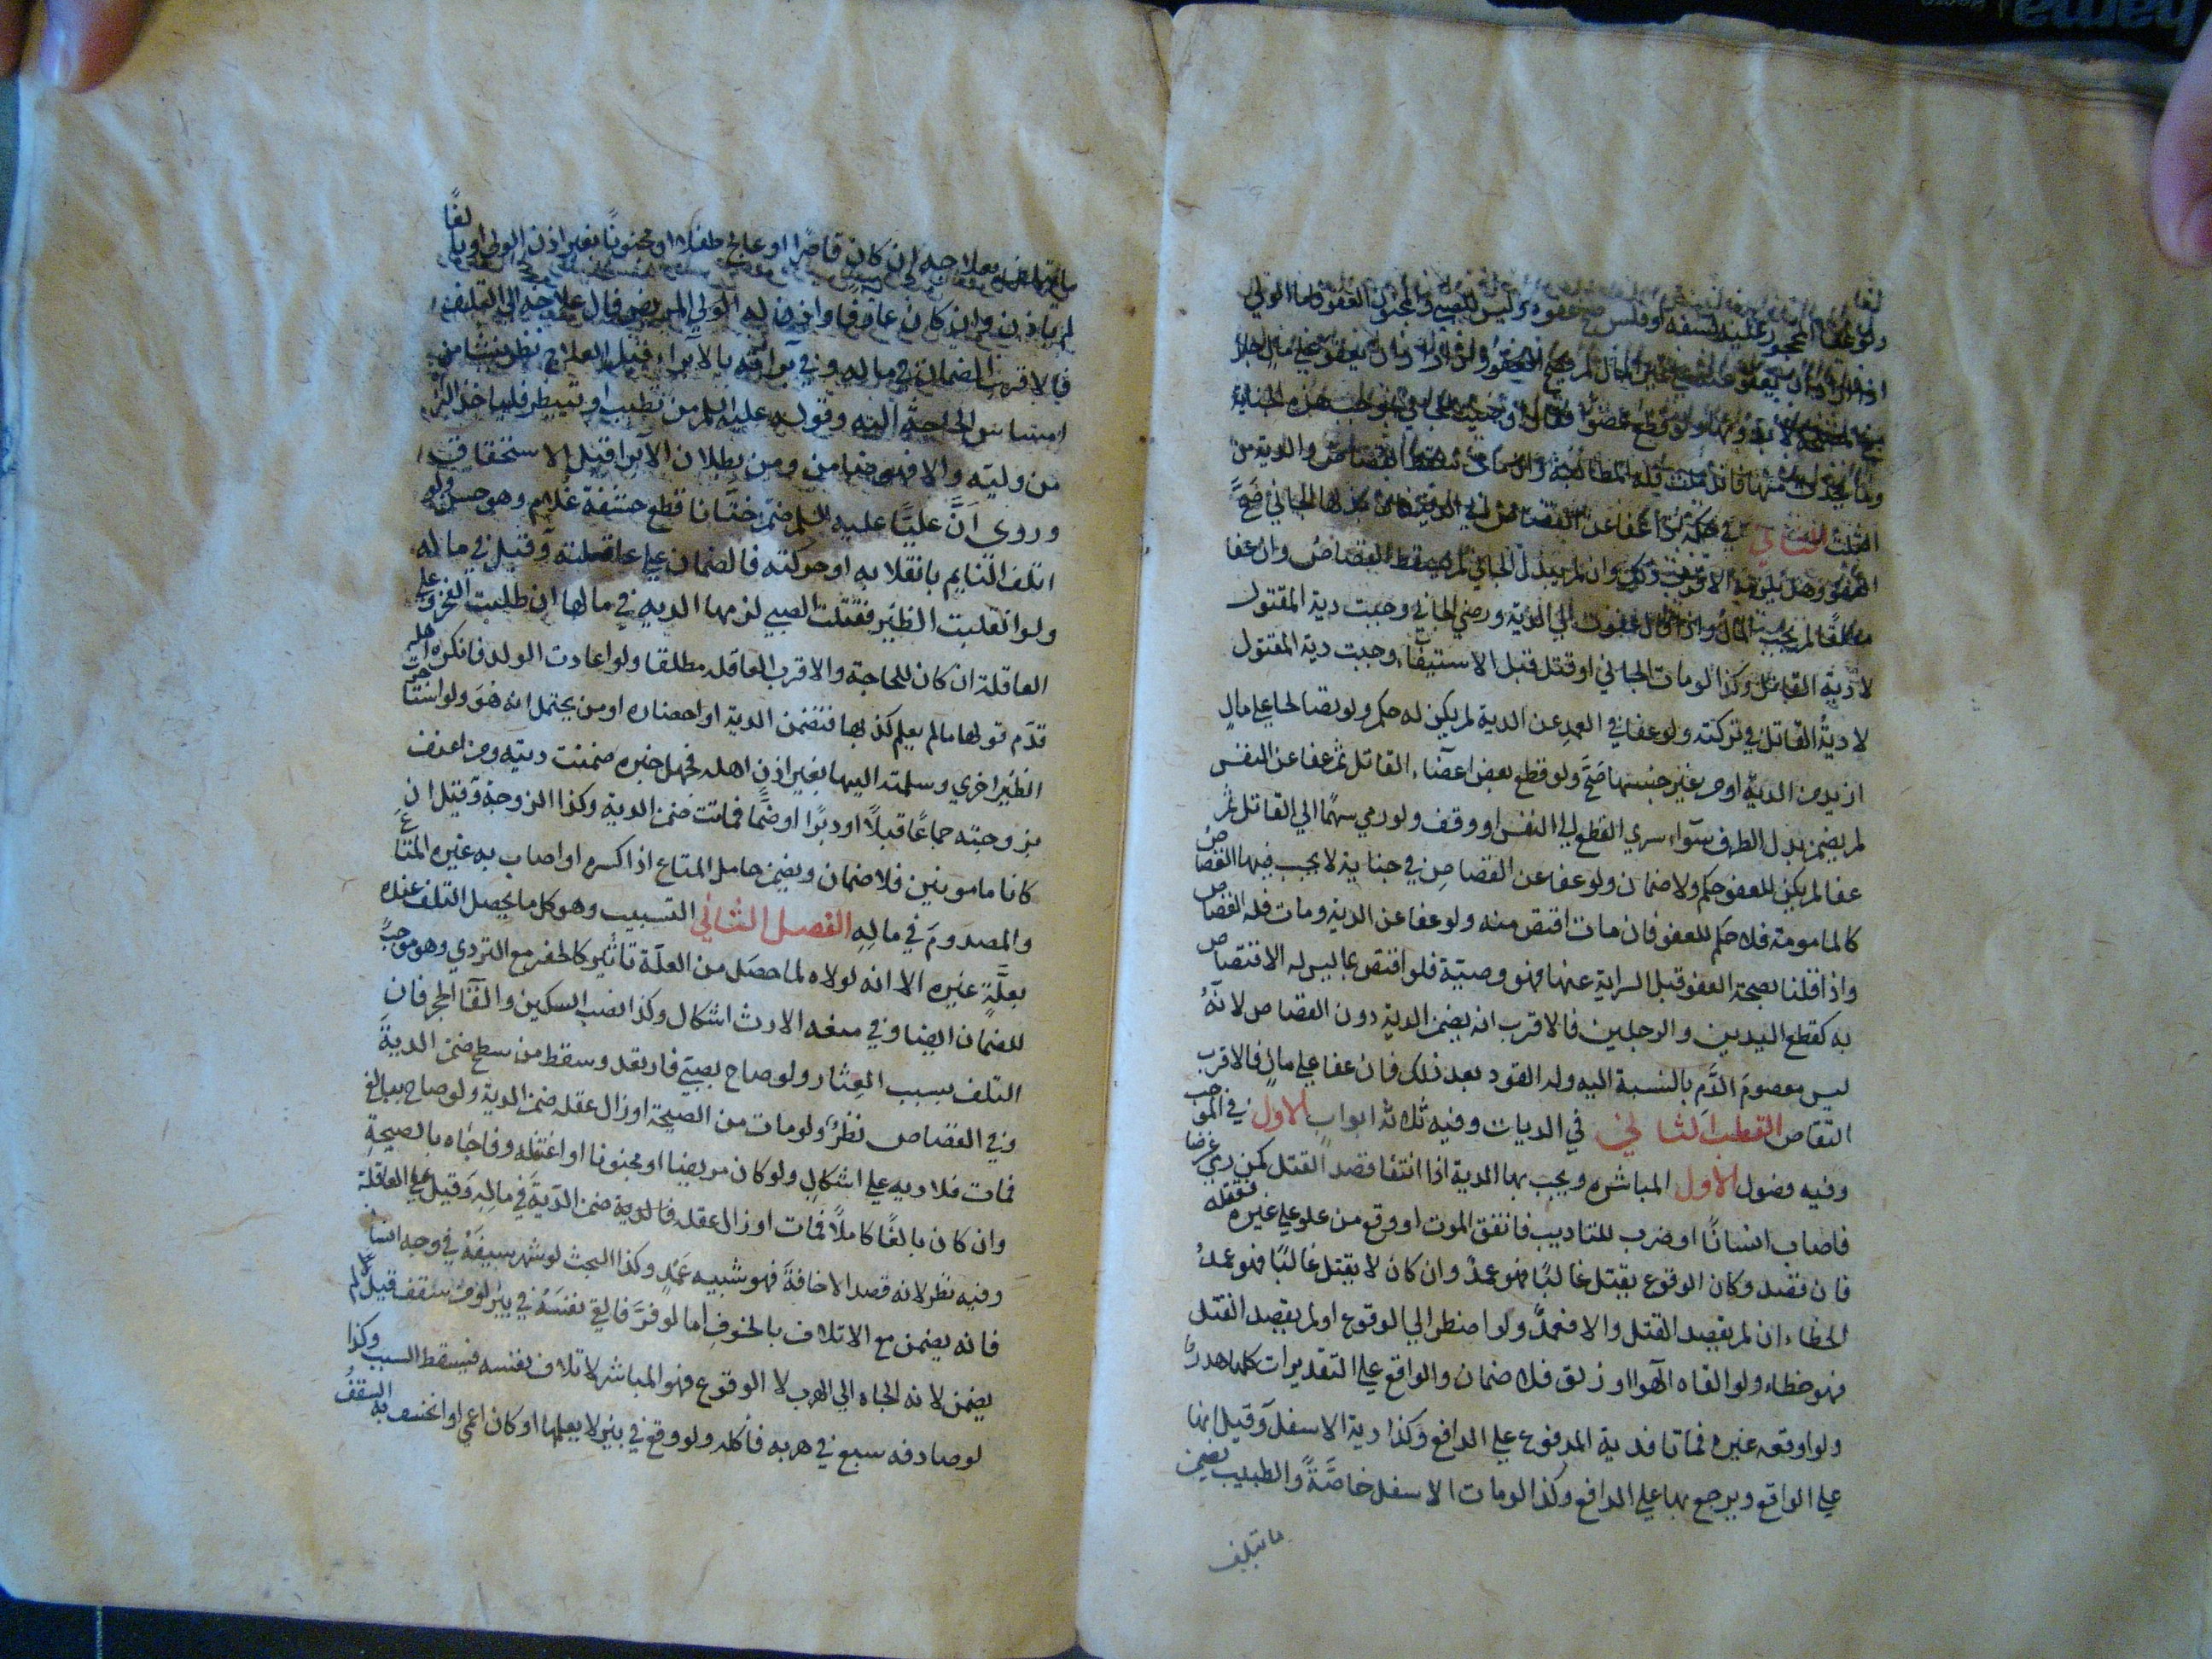 ولو عفا المحجور عليه لسفه او فلس صح عفوه وليس للصبي والمجنون العفو واما الولي
لم يصح العفو ولو اراد ان يعفو على مال جاز
ولو قطع عضو فقال
المطالبة القصاص والدية من
الثلث الثاني في حكمه لو عفا عن القصاص الى الدية فان بذلها الجاني صَحَّ
العفو وهل يلزمه الاقرب ذلك وان لم يبذل الجاني لم يسقط القصاص وان عفا
مطلقًا لم يجب المال واذا قال عفوت الي الدية ورضي الجاني وجبت دية المقتول
لا دية القاتل وكذا لو مات الجاني او قتل قبل الاستيفاء وجبت دية المقتول
لا دية القاتل في تركته ولو عفا في العمدِ عن الدية لم يكن له حكم ولو تصالحا علي مالٍ
ازيد من الدية او من غير جنسها صَحَّ ولو قطع بعض اعضاء القاتل ثم عفا عن النفس
لم يضمن بدل الطرف سوآء سري القطع الي النفس او وقف ولو رمي سهمًا الي القاتل ثم
عفا لم يكن للعفو حكم ولا ضمان ولو عفا عن القصاصِ في جناية لا يجب فيها القصاص
كالمامومة فلا حكم للعفو فان مات اقتص منه ولو عفا عن الدية ومات فله القصاص
واذا قلنا بصحة العفو قبل السراية عنها فهو وصية فلو اقتص بما ليس له الاقتصاص
به كقطع اليدين والرجلين فالاقرب انه يضمن الدية دون القصاص لانّهُ
ليس معصومَ الدَّم بالنسبة اليه وله القود بعد ذلك فان عفا علي مالٍ فالاقرب
التقاص القطب الثاني في الديات وفيه ثلاثه ابواب الاول في الموجب
وفيه فصول الاول المباشره ويجب بها الدية اذا انتفا قصد القتل كمن رمي غرضا
فاصاب انسانًا او ضرب للتاديب فاتفق الموت او وقع من علو علي غيره فقتله
فان قصد وكان الوقوع يقتل غالبًا فهو عمدٌ وان كان لا يقتل غالبًا فهو عمدُ
الخطاء ان لم يقصد القتل والا فعمدٌ ولو اضطر الي الوقوع او لم يقصد القتل
فهو خطاء ولو القاه الهوا او زلق فلا ضمان والواقع علي التقديرات كلها هدر
ولو اوقعه غيره فماتا فدية المدفوع علي الدافع وكذا دية الاسفل وقيل انها
علي الواقع ويرجع بها علي الدافع وكذا لو مات الاسفل خاصَّةً والطبيب يضمن
ما يتلف
ما يتلف بعلاجه ان كان قاصرًا او عالج طفلا او مجنونًا بغير اذن الولي او بالغًا
لم ياذن وان كان عارفا واذن له الولي او المريض فال علاجه الي التلف
فالاقرب الضمان في ماله وفي برآءته بالابراء قبل العلاج نظر ينشا من
امساس الحاجة اليه وقوله عليه السلم من تطبب او تبيطر فلياخذ البراءة
من وليه والا فهو ضامن ومن بطلان الابراء قبل الاستحقاق
وروي اَنَّ عليًّا عليه السلم ضمن ختّانا قطع حشفة غلام وهو حسن ولو
اتلف النايم بانقلابه او حركته فالضمان علي عاقلته وقيل في ماله
ولو انقلبت الظئر فقتلت الصبي لزمها الديه في مالها ان طلبت الفخر وعلي
العاقلة ان كان للحاجة والاقرب العاقله مطلقا ولو اعادت الولد فانكره اهله
قدّم قولها ما لم يعلم كذبها فتضمن الدية او احضاره او من يحتمل انه هُوَ ولو استاجرت
الظئر اخري وسلمته اليها بغير اذن اهله فجهل خبره ضمنت ديته ومن اعنف
بزوجته جماعًا قبلًا او دبرًا او ضمًّا فماتت ضمن الدية وكذا الزوجة وقيل ان
كانا مامونين فلا ضمان ويضمن حامل المتاع اذا كسره او اصاب به غيره المتاع
والمصدومَ في مالِهِ الفصل الثاني التسبيب وهو كل ما يحصل التلف عنده
بعلَّةٍ غيره الا انه لولاه لما حصَل من العلّة تاثير كالحفر مع التردي وهو موجبٌ
للضمان ايضا وفي منعه الارث اشكال وكذا نصب السكين والقآ الحجر فان
التلف بسبب العِثار ولو صاح بصبيّ فارتعد وسقط من سطح ضمن الديةَ
وفي القصاص نظرٌ ولو مات من الصيحة او زال عقله ضمن الدية ولو صاح ببالغ
فمات فلا ديه علي اشكالٍ ولو كان مريضا او مجنونا او اغتفله وفاجاه بالصيحةِ
وان كان بالغًا كاملًا فمات او زال عقله فالدية ضمن الدّيةَ في مالِهِ وَقيل علي العاقلة
وفيه نظر لانه قصد الاخافةَ فهو شبيه عَمْدٍ وكذا البحث لو شهر سيفَهُ في وجه انسان
فانه يضمن مع الاتلاف بالخوفِ اما لو فرّ فالقي نفسَهُ في بير او من سقف قيل لم
يضمن لانه الجاه الي الهرب لا الوقوع فهو المباشر لاتلاف نفسه فيسقط السبب وكذا
لو صادفه سبع في هربه فاكله ولو وقع في بير لا يعلمها او كان اعمي او انخسف به السقفُ